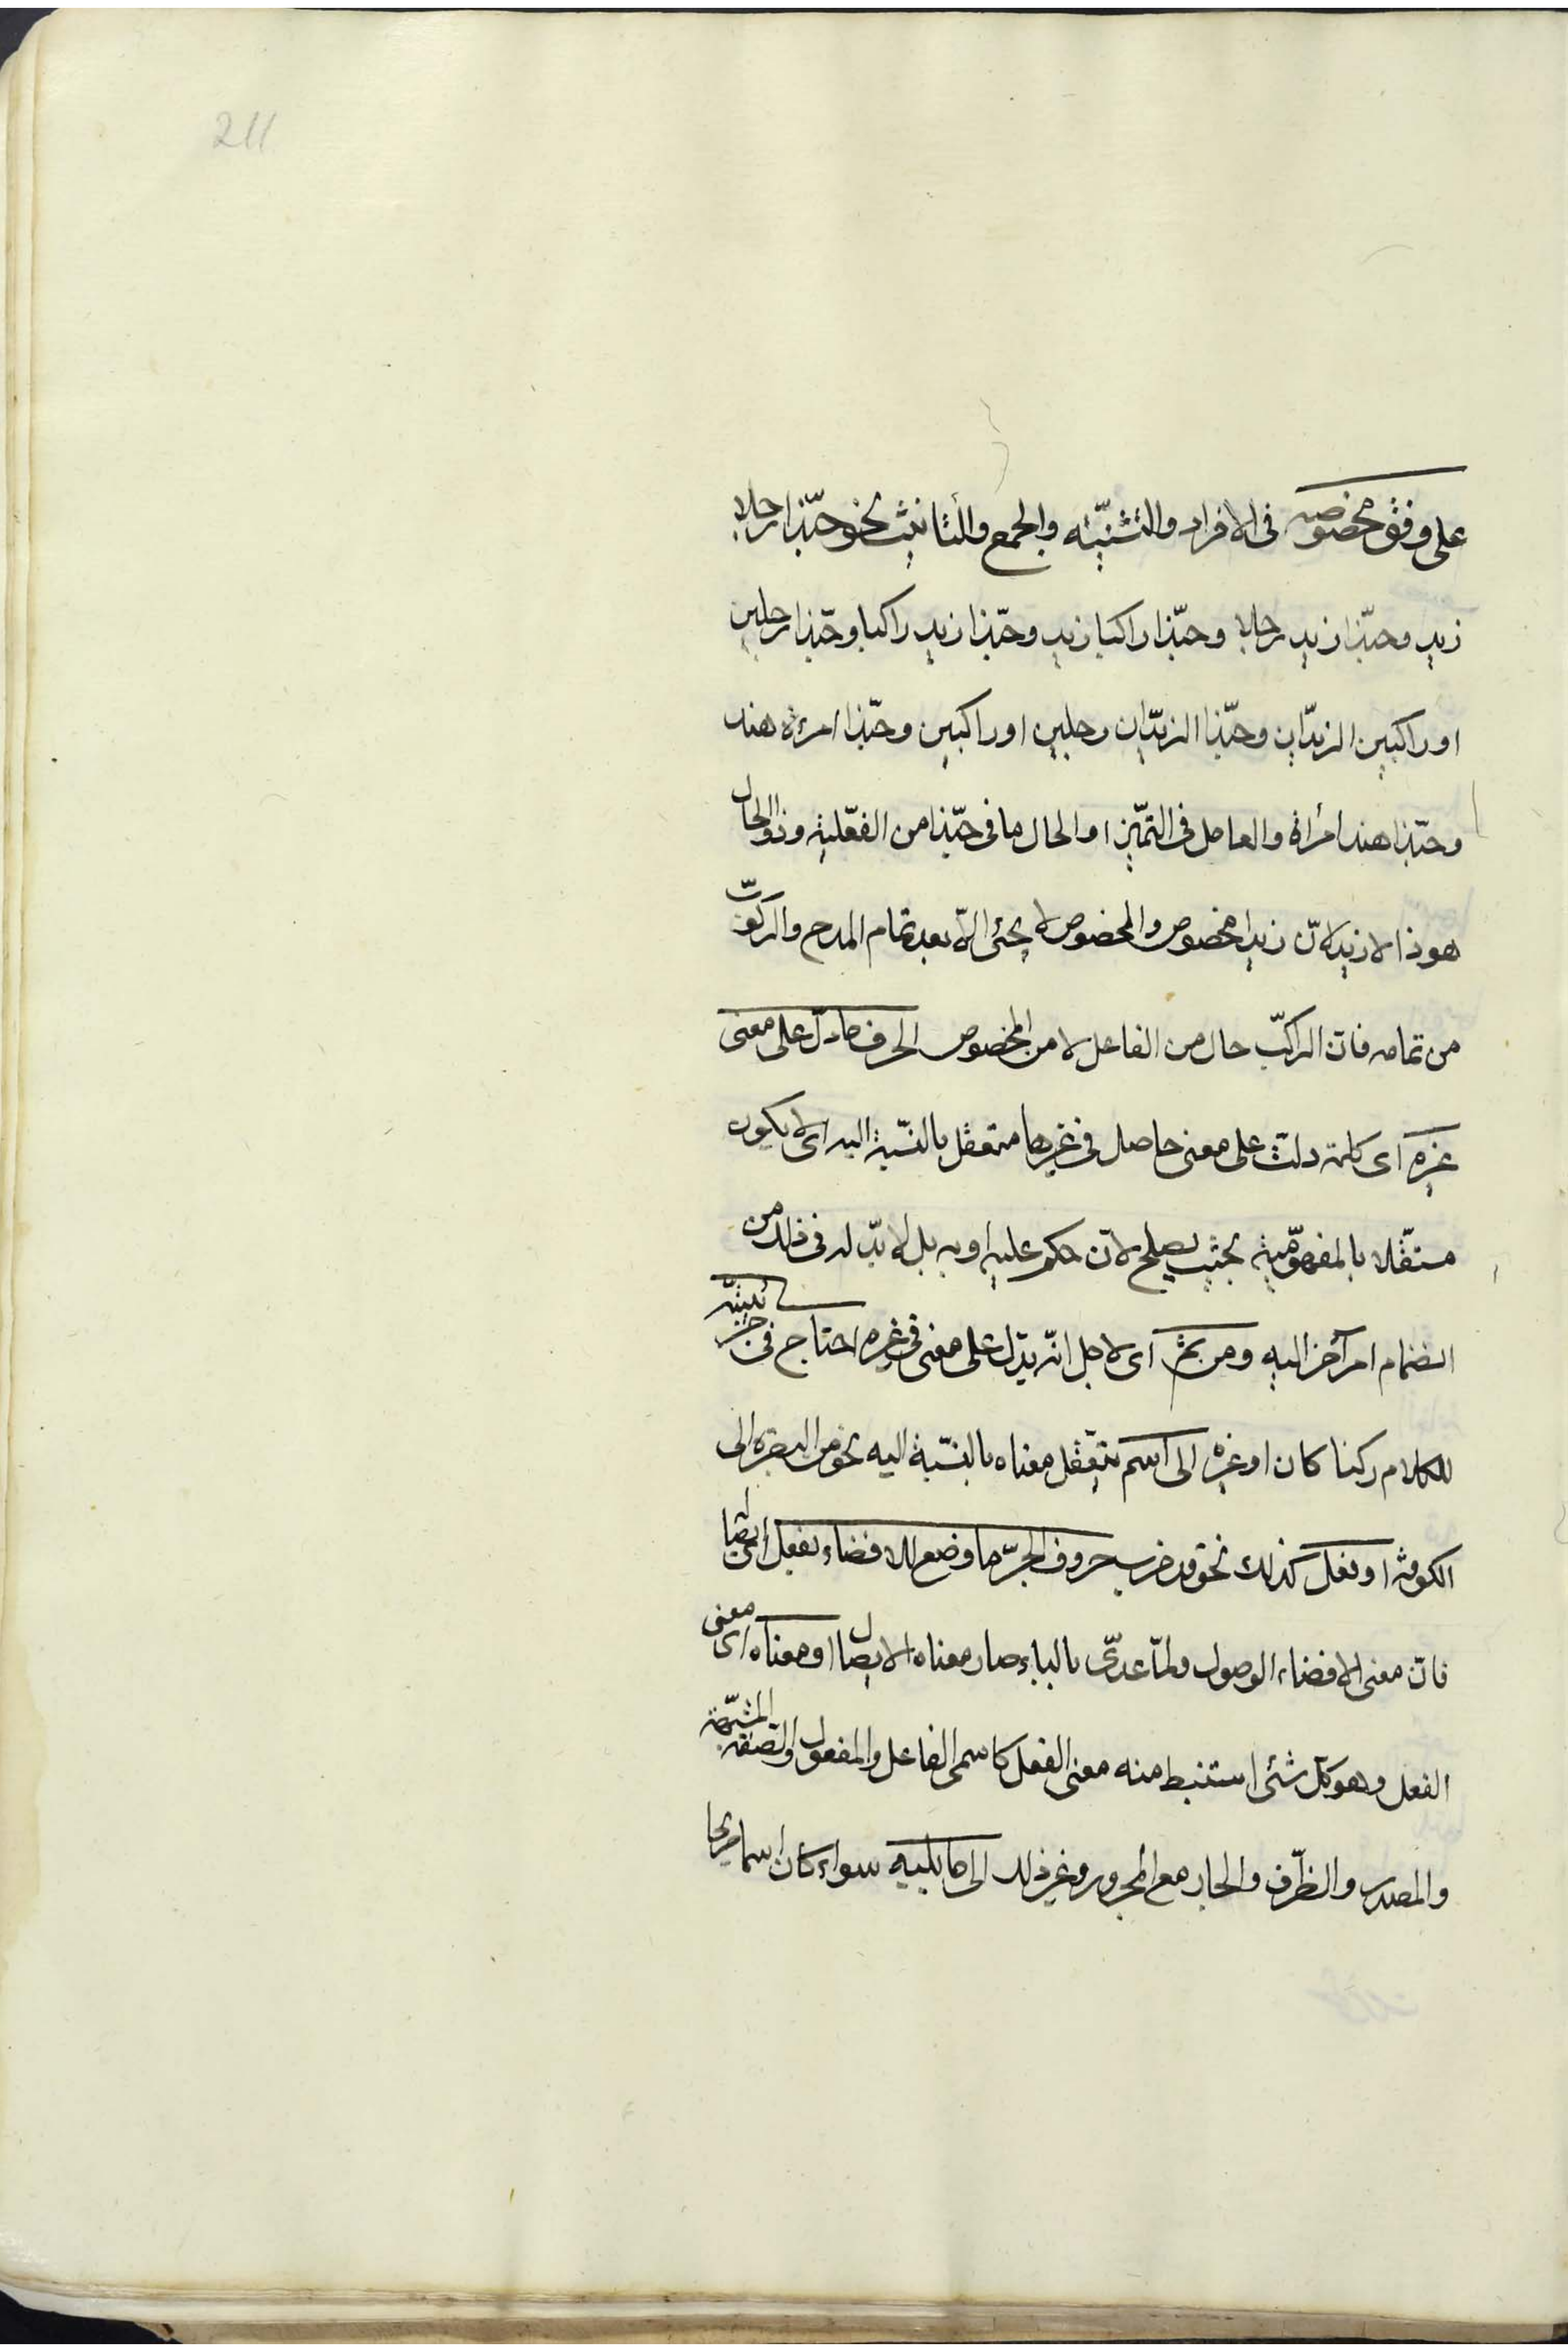 211
على وفق مخصوصه فى الافراد والتثنيّة والجمع والتأنيث نحو حبّذا رجلا
زيد وحبّذا زيد رجلا وحبّذا راكبا زيد وحبّذا زيد راكبا وحبّذا رجلين
او راكبين الزيدّان وحبّذا الزيدّان رجلين او راكبين وحبّذا امرئة هند
وحبّذا هند امرأة والعامل فى التميّز او الحال ما فى حبّذا من الفعّلية وذو الحال
هو ذا لا زيد لانّ زيدا مخصوص والمخصوص لا يجئ الّا بعد تمام المدح والركوّب
من تمامه فانّ الراكبّ حال من الفاعل لا من المخصوص الحرف ما دلّ على معنى
غيره اى كلمة دلت على معنى حاصل فى غيرها متعقل بالنسّبة اليه اى لا يكون
مستقّلا بالمفهوّمية بحيث يصلح لانّ حكم عليه او به بل لا بدّ له فى ذلك من
انضمام امر آخر اليه ومن ثم اى لاجل انّه يدّل على معنى فى غيره احتاج فى جزئيتّه
للكلام ركنا كان او غيره الى اسم يتعّقل معناه بالنسّبة اليه نحو من البصرة الى
الكوفة او فعل كذلك نحو قد ضرب حروف الجرّ ما وضع للافضاء بفعل اى لايصا
فانّ معنى الافضاء الوصول ولمّا عدّى بالباء صار معناه الايصال او معناه اى معنى
الفعل وهو كلّ شئ استنبط منه معنى الفعل كاسمى الفاعل والمفعول والصّفة المشبّهة
والمصدر والظّرف والجار مع المجرور وغير ذلك الى ما يليه سواء كان اسما صريحا